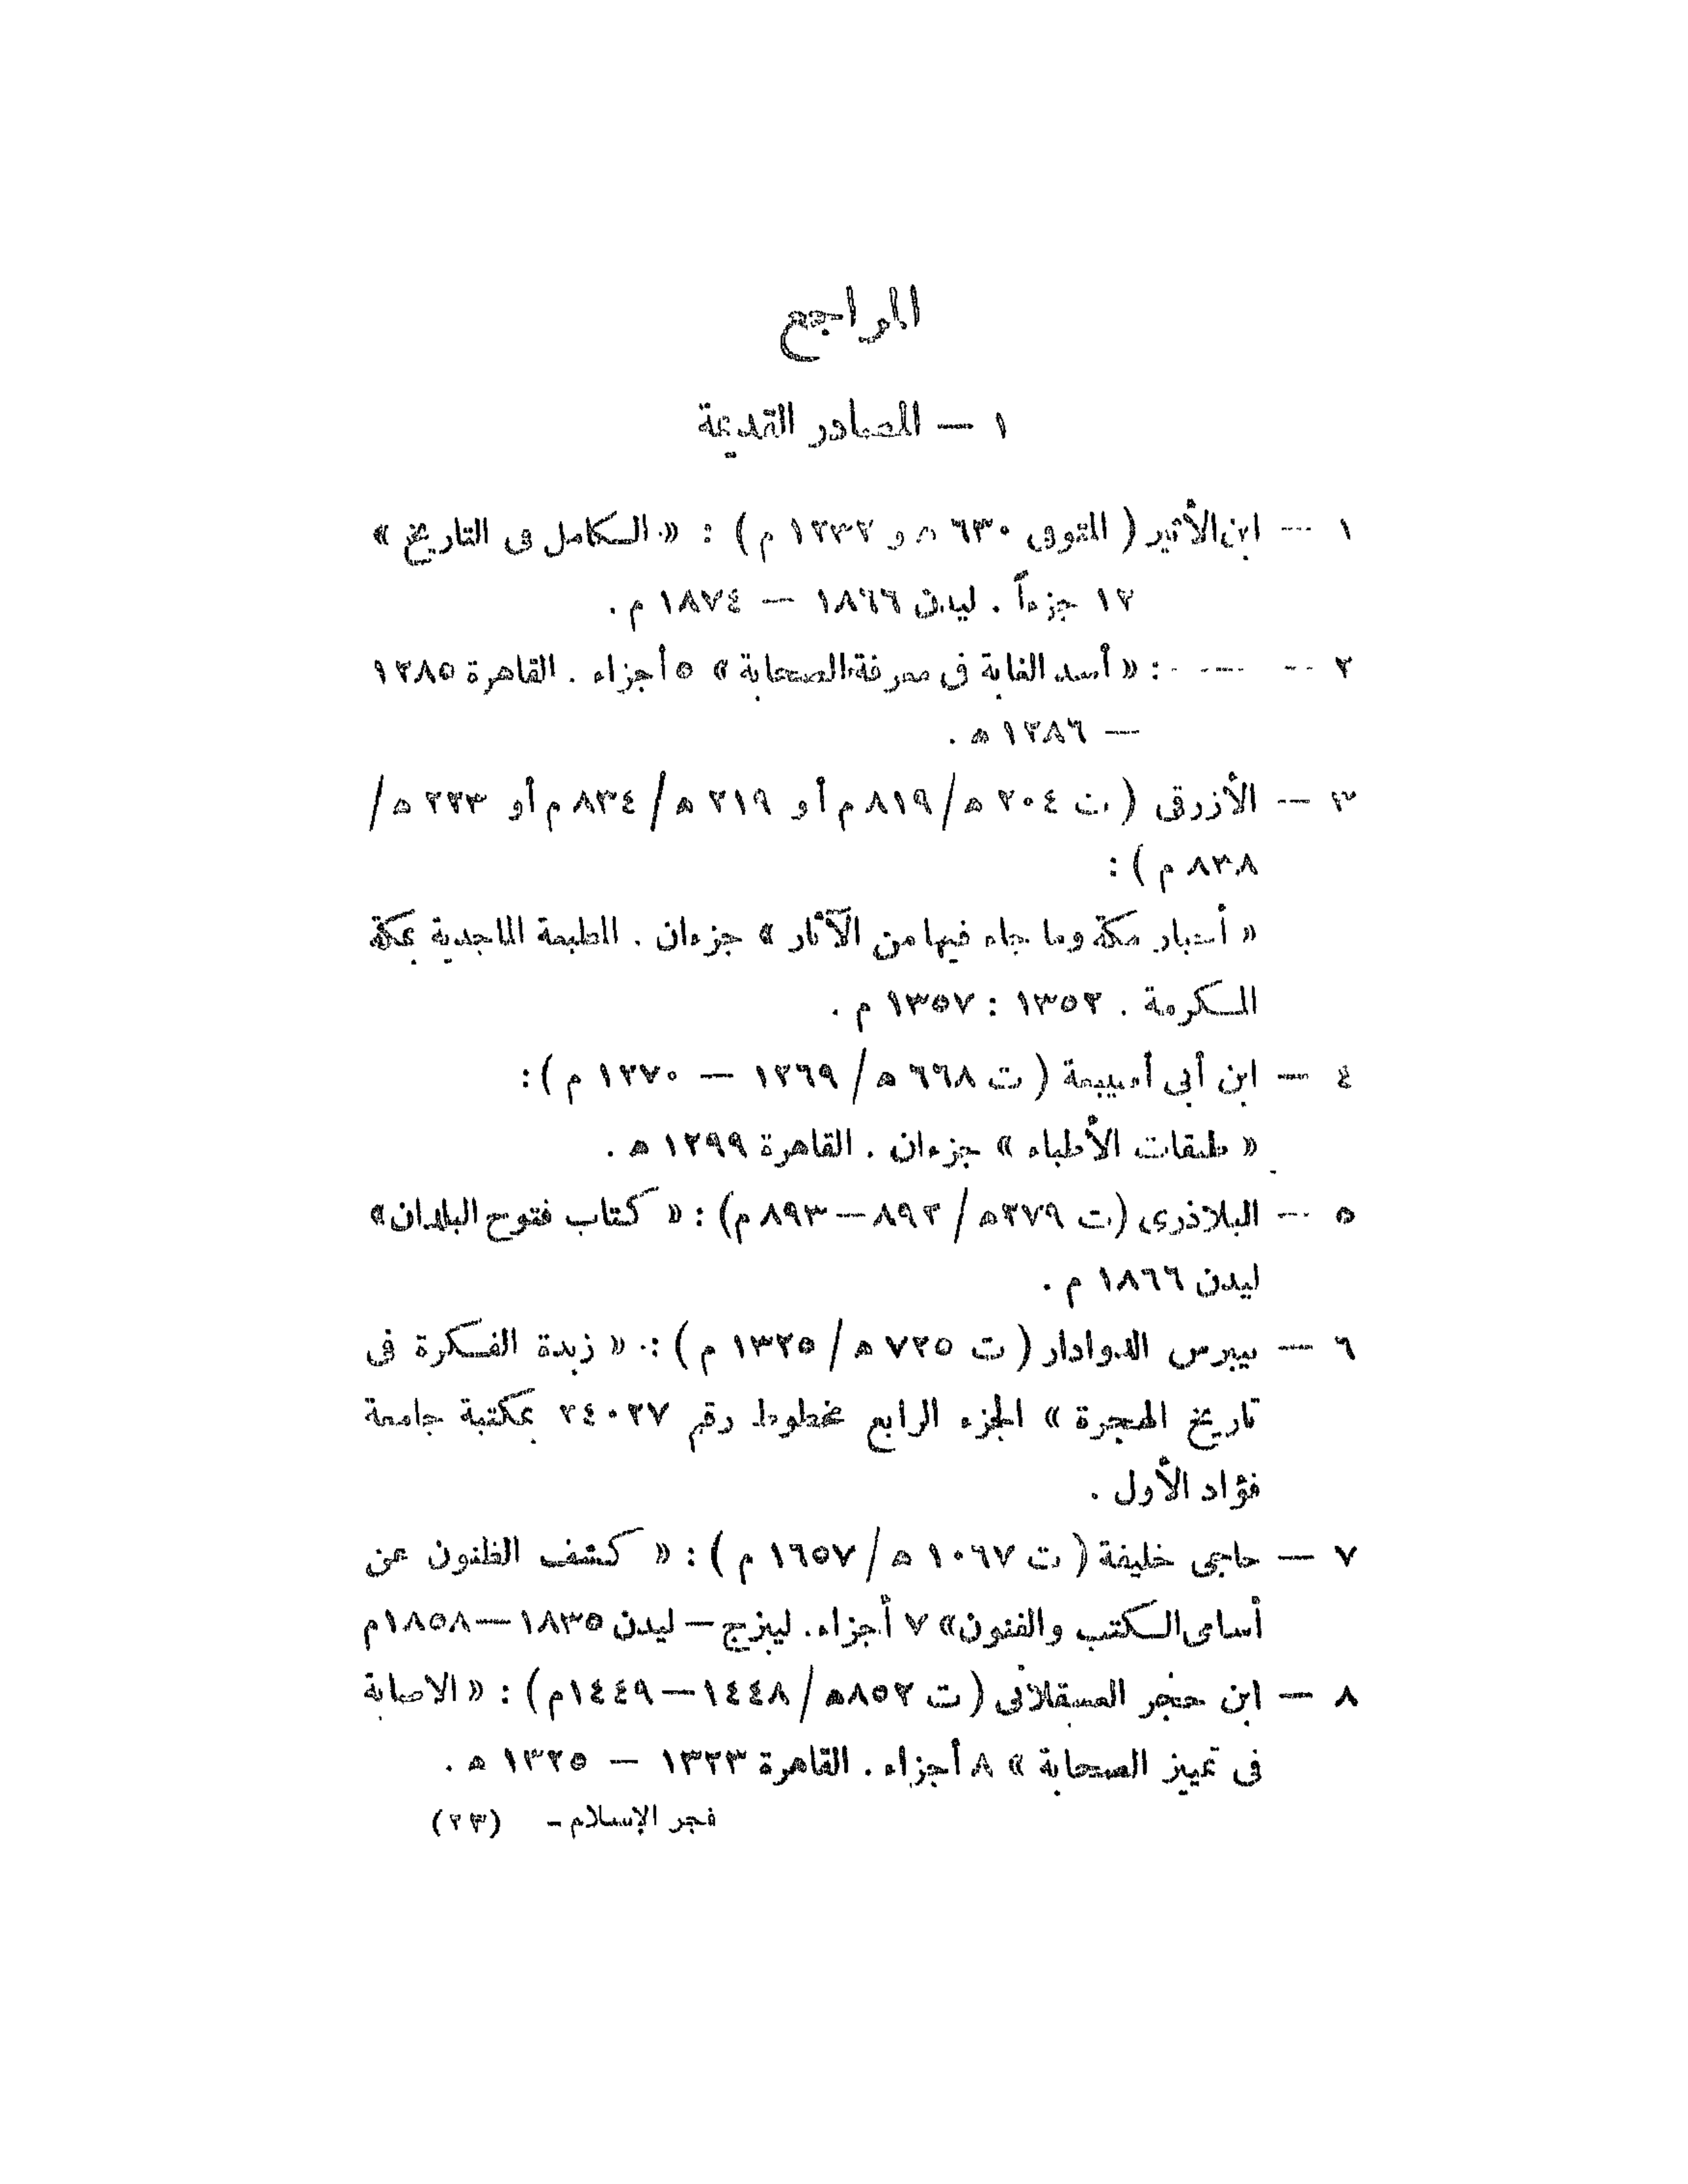 المراجع
١ — المصادر القديمة
١ — ابن الأثير ( المتوفى ٦٣٠ ه و ١٢٣٢ م ) : « الكامل فى التاريخ »
١٢ جزءاً . ليدن ١٨٦٦ — ١٨٧٤ م .
٢ — — : « أسد الغابة فى معرفة الصحابة » ٥ أجزاء . القاهرة ١٢٨٥
— ١٢٨٦ ه .
٣ — الأزرقى ( ت ٢٠٤ ه / ٨١٩ م أو ٢١٩ ه / ٨٣٤ م أو ٢٢٣ ه /
٨٣٨ م ) :
« أخبار مكة وما جاء فيها من الآثار » جزءان . المطبعة الماجدية بمكة
المكرمة . ١٣٥٢ : ١٣٥٧ م .
٤ — ابن أبى أصيبعة ( ت ٦٦٨ ه / ١٢٦٩ — ١٢٧٠ م ) :
« طبقات الأطباء » جزءان . القاهرة ١٢٩٩ ه .
٥ — البلاذرى ( ت ٢٧٩ ه / ٨٩٢ — ٨٩٣ م ) : « كتاب فتوح البلدان »
ليدن ١٨٦٦ م .
٦ — بيبرس الدوادار ( ت ٧٢٥ ه / ١٣٢٥ م ) : « زبدة الفكرة فى
تاريخ الهجرة » الجزء الرابع مخطوط رقم ٢٤٠٢٧ بمكتبة جامعة
فؤاد الأول .
٧ — حاجى خليفة ( ت ١٠٦٧ ه / ١٦٥٧ م ) : « كشف الظنون عن
أسامى الكتب والفنون » ٧ أجزاء . ليبزج — ليدن ١٨٣٥ — ١٨٥٨ م
٨ — ابن حجر العسقلانى ( ت ٨٥٢ ه / ١٤٤٨ — ١٤٤٩ م ) : « الاصابة
فى تمييز الصحابة » ٨ أجزاء . القاهرة ١٣٢٣ — ١٣٢٥ ه .
فجر الإسلام - (٢٣)